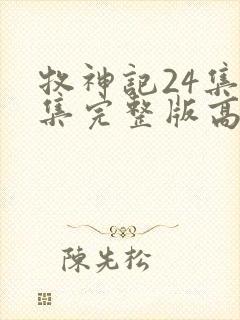 牧神記24集
集完整版高
陳先松